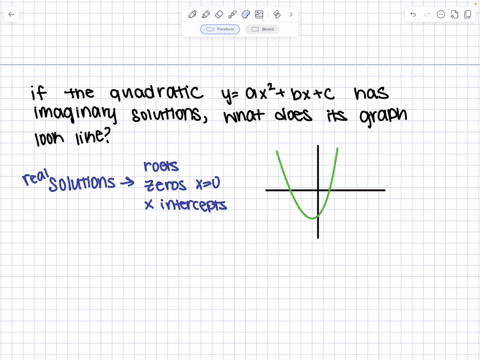 if the quadratic y=ax²+bx+c has
imaginary solutions, what does its graph
look line?
real solutions → roots
zeros x=0
x intercepts